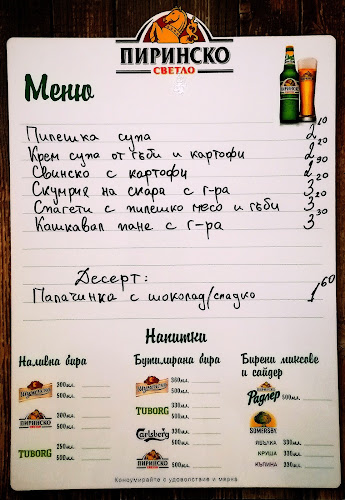 ПИРИНСКО
СВЕТЛО
Меню
Пилешка супа 2 10
Крем супа от гъби и картофи 2 20
Свинско с картофи 2 90
Скумрия на скара с г-ра 3 20
Спагети с пилешко месо и гъби 3 20
Кашкавал пане с г-ра 3 30
Десерт:
Палачинка с шоколад/сладко 1 60
Напитки
Наливна бира
300мл.
500мл.
ПИРИНСКО
СВЕТЛО
300мл.
500мл.
TUBORG
250мл.
500мл.
Бутилирана бира
500мл.
TUBORG
330мл.
500мл.
Carlsberg
330мл.
500мл.
ПИРИНСКО
СВЕТЛО
500мл.
Бирени миксове
и сайдер
Радлер
500мл.
SOMERSBY
ЯБЪЛКА 330мл.
КРУША 330мл.
КЪПИНА 330мл.
Консумирайте с удоволствие и мярка.